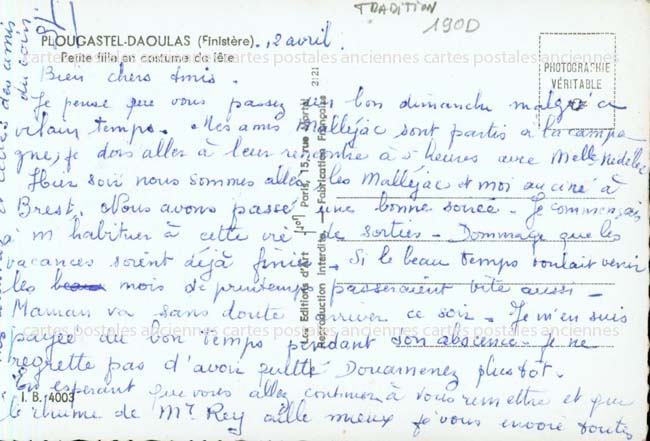 TRADITION
1900
PLOUGASTEL-DAOULAS (Finistère). , 2 avril.
Petite fille en costume de fête
PHOTOGRAPHIE
VÉRITABLE
cartes postales anciennes cartes postales anciennes cartes postales anciennes
Bien chers Amis.
Je pense que vous passez un bon dimanche malgré ce
vilain temps. Mes amis Malléjac sont partis à la campa
gne, je dois aller à leur rencontre à 5 heures avec Melle Nédélec
Hier soir nous sommes allés les Malléjac et moi au ciné à
Brest. Nous avons passé une bonne soirée. Je commençais
à m'habituer à cette vie de sorties. Dommage que les
vacances soient déjà finies. Si le beau temps voulait venir
les mois de printemps passeraient vite aussi.
Maman va sans doute arriver ce soir. Je m'en suis
cartes postales anciennes cartes postales anciennes cartes postales anciennes
payée du bon temps pendant son absence. Je ne
regrette pas d'avoir quitté Douarnenez plus tôt.
En espérant que vous allez continuer à vous remettre et que
le rhume de Mr Rey aille mieux je vous envoie toutes
I. B. 4003
Les Editions d'Art Jos Paris, 15, rue Martel 2-21
Reproduction Interdite - Fabrication Française
des amis
du coin